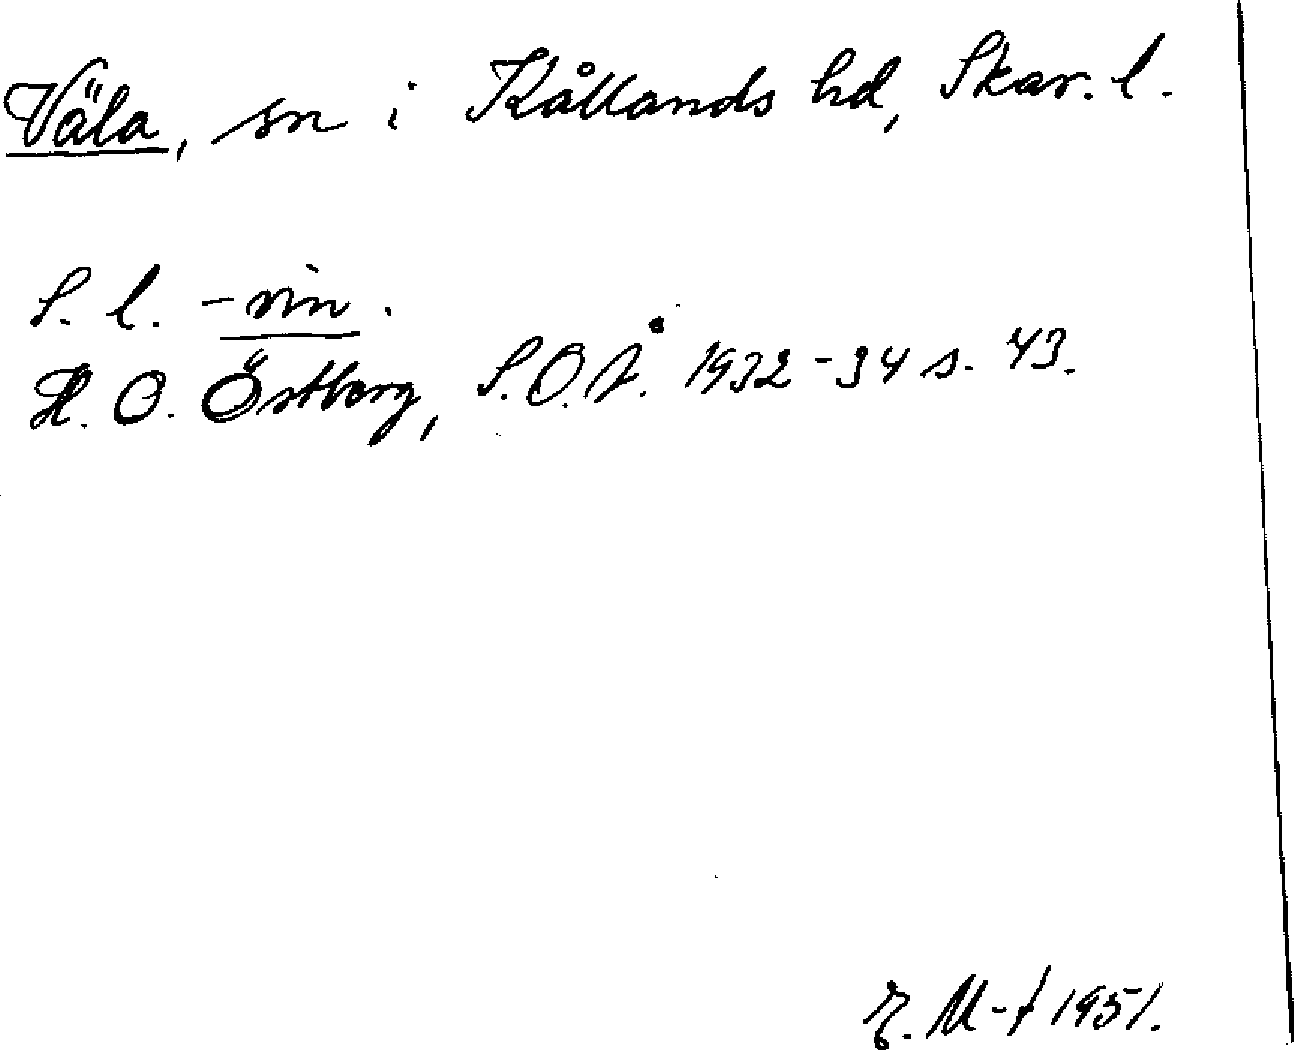 Väla, sn i Kållands hd, Skar. l.
S. l. -vin.
H. O. Östberg, S.O.Å. 1932-34 s. 43.
E. M-t 1951.